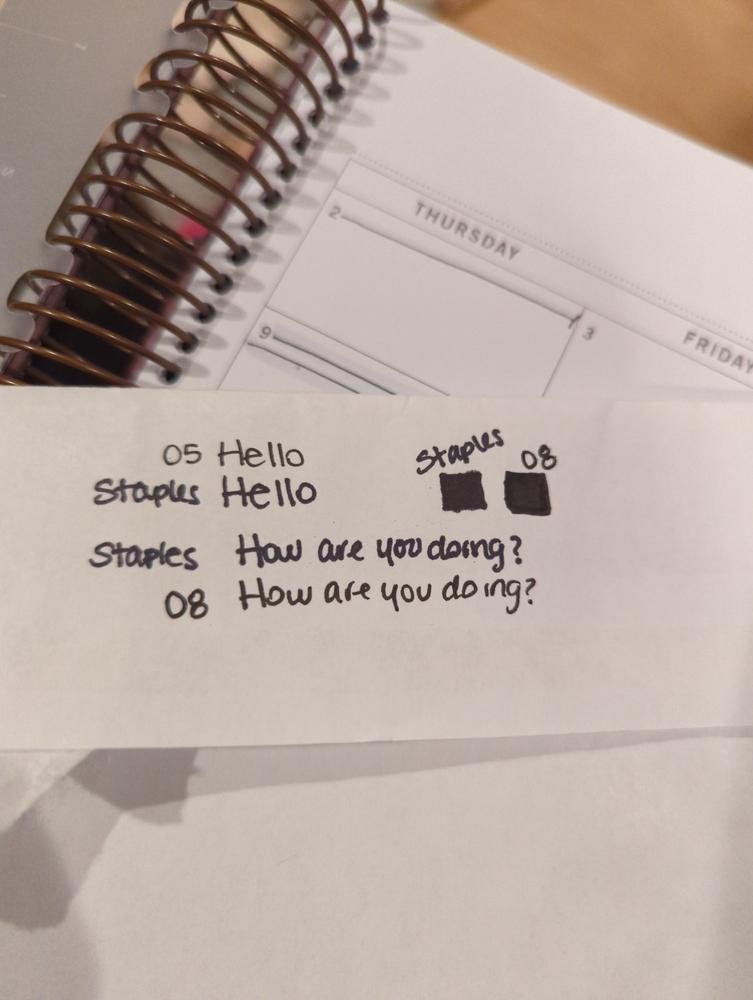 THURSDAY
FRIDAY
2
3
9
05 Hello
Staples Hello
Staples 08
Staples How are you doing?
08 How are you doing?